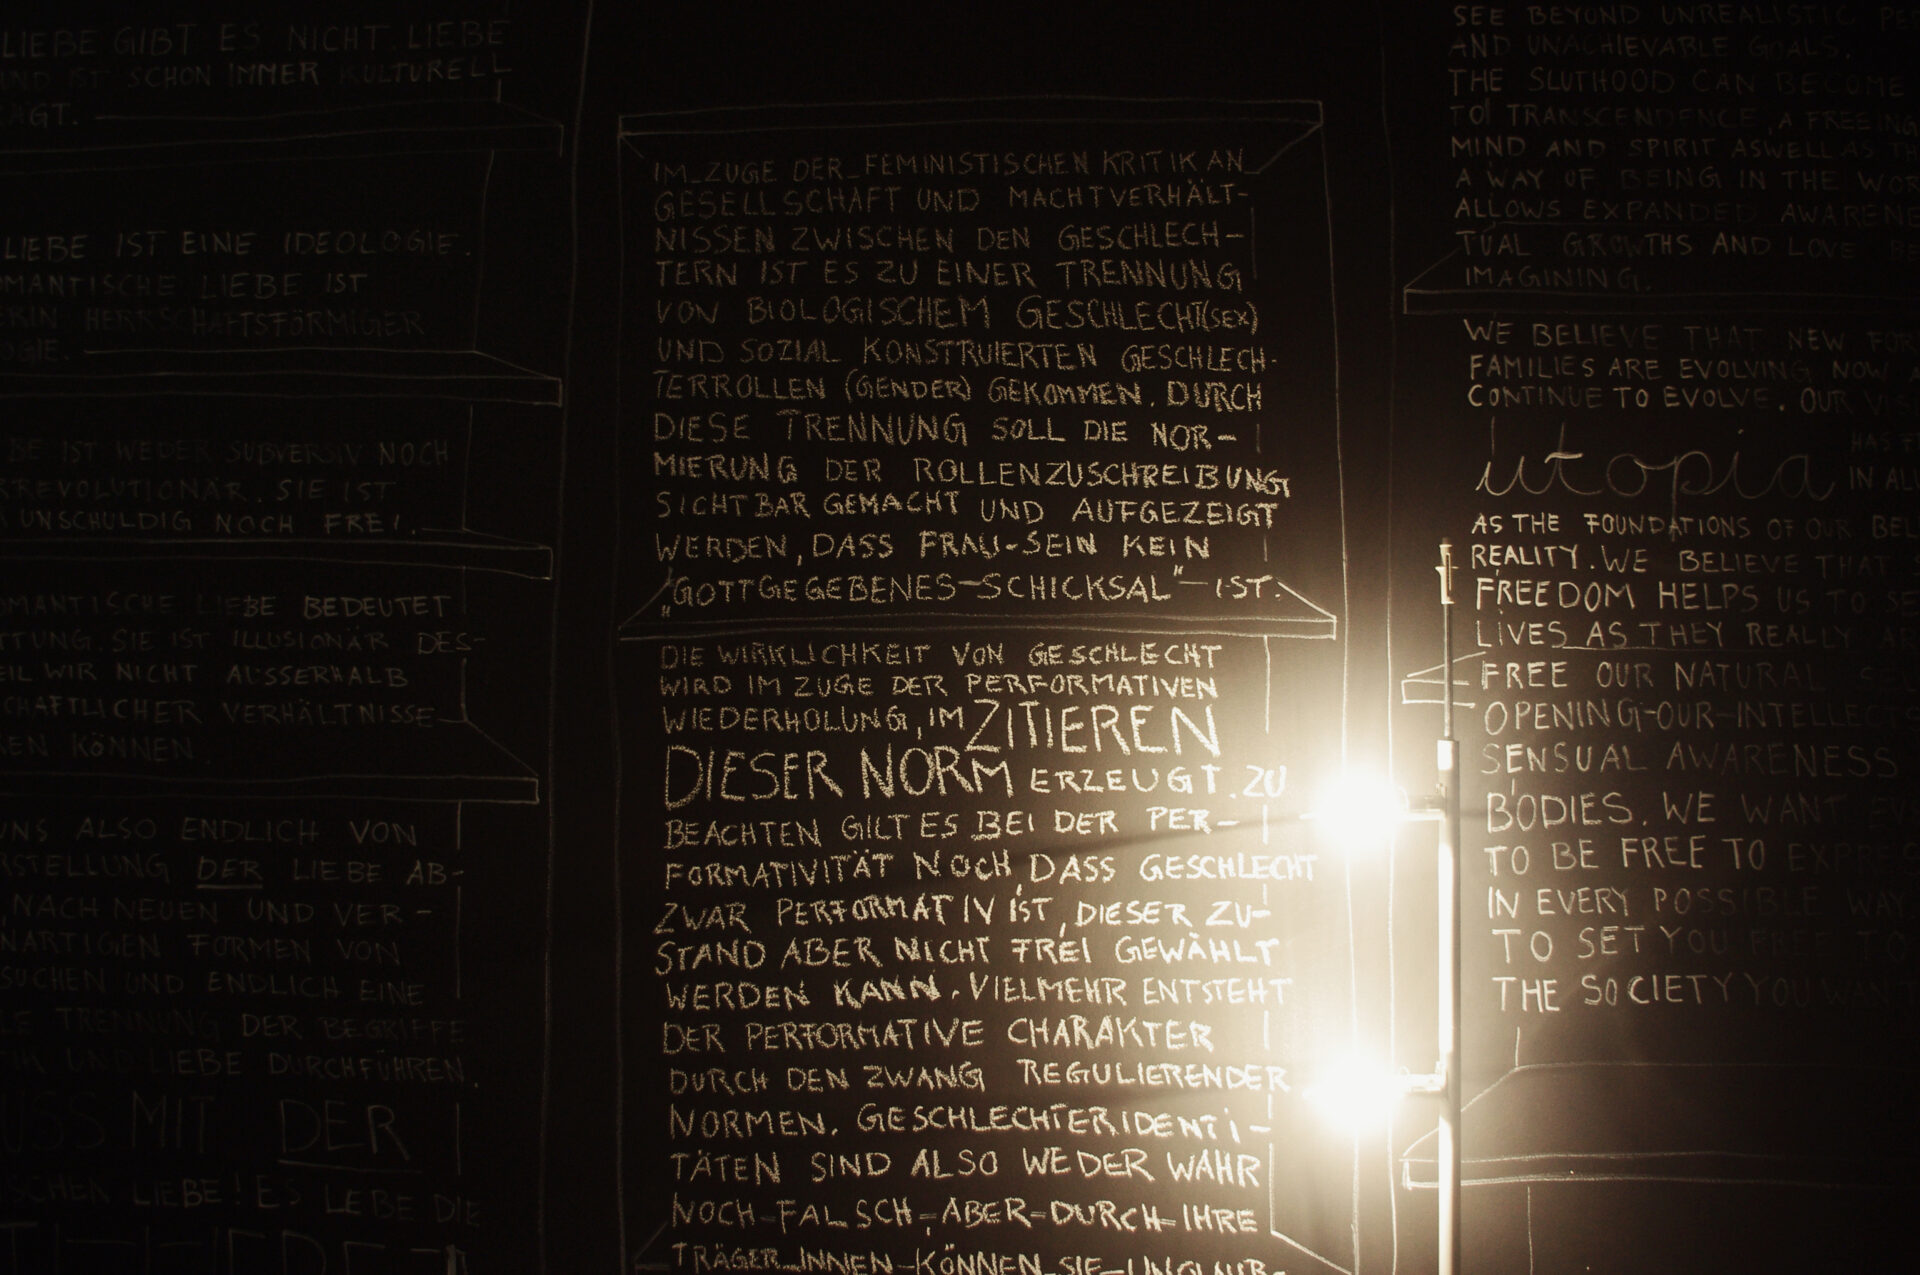 LIEBE GIBT ES NICHT. LIEBE
UND IST SCHON IMMER KULTURELL
ÄGT.
LIEBE IST EINE IDEOLOGIE.
OMANTISCHE LIEBE IST
ERIN HERRSCHAFTSFÖRMIGER
OGIE.
BE IST WEDER SUBVERSIV NOCH
RREVOLUTIONÄR. SIE IST
UNSCHULDIG NOCH FREI.
OMANTISCHE LIEBE BEDEUTET
TTUNG. SIE IST ILLUSIONÄR DES-
EIL WIR NICHT AUSSERHALB
CHAFTLICHER VERHÄLTNISSE
REN KÖNNEN.
UNS ALSO ENDLICH VON
RSTELLUNG DER LIEBE AB-
, NACH NEUEN UND VER-
NARTIGEN FORMEN VON
SUCHEN UND ENDLICH EINE
LE TRENNUNG DER BEGRIFFE
TIK UND LIEBE DURCHFÜHREN.
USS MIT DER
ISCHEN LIEBE! ES LEBE DIE
IM ZUGE DER FEMINISTISCHEN KRITIK AN
GESELLSCHAFT UND MACHTVERHÄLT-
NISSEN ZWISCHEN DEN GESCHLECH-
TERN IST ES ZU EINER TRENNUNG
VON BIOLOGISCHEM GESCHLECHT(SEX)
UND SOZIAL KONSTRUIERTEN GESCHLECH-
TERROLLEN (GENDER) GEKOMMEN. DURCH
DIESE TRENNUNG SOLL DIE NOR-
MIERUNG DER ROLLENZUSCHREIBUNG
SICHTBAR GEMACHT UND AUFGEZEIGT
WERDEN, DASS FRAU-SEIN KEIN
„GOTTGEGEBENES-SCHICKSAL" IST.
DIE WIRKLICHKEIT VON GESCHLECHT
WIRD IM ZUGE DER PERFORMATIVEN
WIEDERHOLUNG, IM ZITIEREN
DIESER NORM ERZEUGT. ZU
BEACHTEN GILT ES BEI DER PER-
FORMATIVITÄT NOCH, DASS GESCHLECHT
ZWAR PERFORMATIV IST, DIESER ZU-
STAND ABER NICHT FREI GEWÄHLT
WERDEN KANN. VIELMEHR ENTSTEHT
DER PERFORMATIVE CHARAKTER
DURCH DEN ZWANG REGULIERENDER
NORMEN. GESCHLECHTERIDENTI-
TÄTEN SIND ALSO WEDER WAHR
NOCH FALSCH, ABER DURCH IHRE
TRÄGER_INNEN KÖNNEN SIE UNGLAUB-
SEE BEYOND UNREALISTIC PE
AND UNACHIEVABLE GOALS.
THE SLUTHOOD CAN BECOME
TO TRANSCENDENCE, A FREEING
MIND AND SPIRIT ASWELL AS TH
A WAY OF BEING IN THE WOR
ALLOWS EXPANDED AWAREN
TUAL GROWTHS AND LOVE BE
IMAGINING.
WE BELIEVE THAT NEW FOR
FAMILIES ARE EVOLVING NOW A
CONTINUE TO EVOLVE. OUR VIS
utopia HAS F
IN ALL
AS THE FOUNDATIONS OF OUR BEL
REALITY. WE BELIEVE THAT S
FREEDOM HELPS US TO SE
LIVES AS THEY REALLY AR
FREE OUR NATURAL
OPENING-OUR-INTELLEC
SENSUAL AWARENESS
BODIES. WE WANT EV
TO BE FREE TO EXPRES
IN EVERY POSSIBLE WAY
TO SET YOU FREE TO
THE SOCIETY YOU WANT